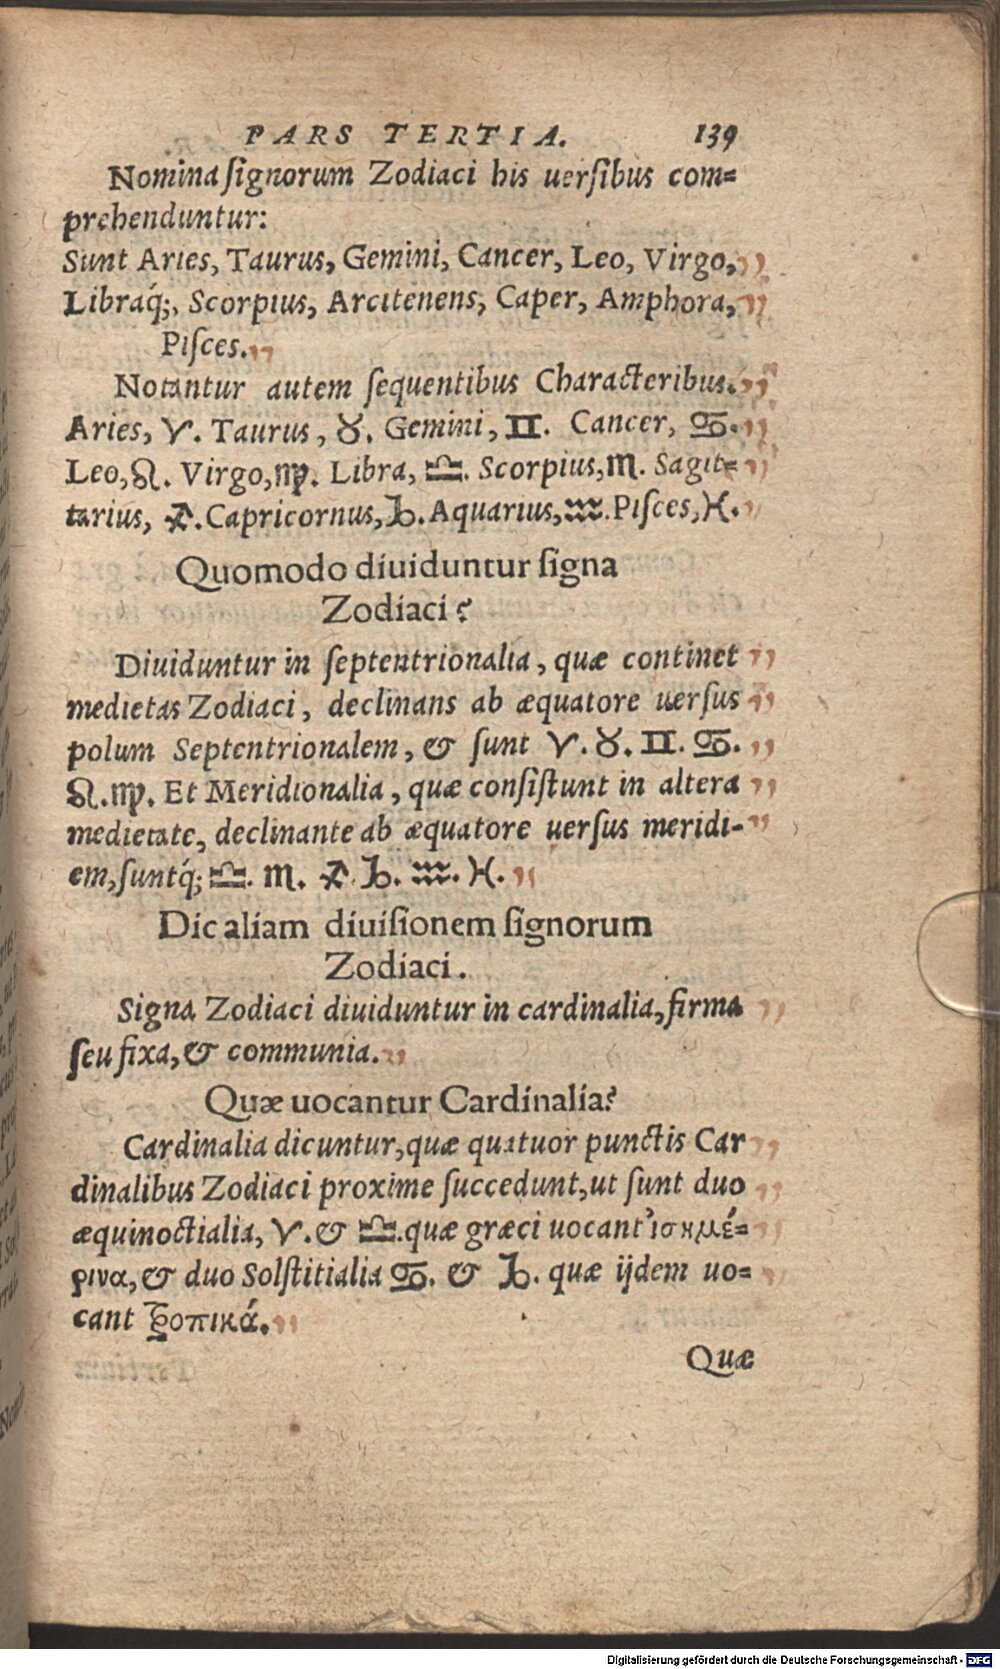 PARS TERTIA. 139
Nomina ſignorum Zodiaci his uerſibus com=
prehenduntur:
Sunt Aries, Taurus, Gemini, Cancer, Leo, Virgo,
Libraq́;, Scorpius, Arcitenens, Caper, Amphora,
Piſces.
Notantur autem ſequentibus Characteribus.
Aries, ♈. Taurus, ♉. Gemini, ♊. Cancer, ♋.
Leo, ♌. Virgo, ♍. Libra, ♎. Scorpius, ♏. Sagit=
tarius, ♐. Capricornus, ♑. Aquarius, ♒. Piſces, ♓.
Quomodo diuiduntur ſigna
Zodiaci?
Diuiduntur in ſeptentrionalia, quæ continet
medietas Zodiaci, declinans ab æquatore uerſus
polum Septentrionalem, & ſunt ♈. ♉. ♊. ♋.
♌. ♍. Et Meridionalia, quæ conſiſtunt in altera
medietate, declinante ab æquatore uerſus meridi-
em, ſuntq́; ♎. ♏. ♐. ♑. ♒. ♓.
Dic aliam diuiſionem ſignorum
Zodiaci.
Signa Zodiaci diuiduntur in cardinalia, firma
ſeu fixa, & communia.
Quæ uocantur Cardinalia?
Cardinalia dicuntur, quæ quatuor punctis Car
dinalibus Zodiaci proxime ſuccedunt, ut ſunt duo
æquinoctialia, ♈. & ♎. quæ græci uocant ἰσημέ=
ρινα, & duo Solſtitialia ♋. & ♑. quæ ijdem uo=
cant τροπικά.
Quæ
Digitalisierung gefördert durch die Deutsche Forschungsgemeinschaft - DFG